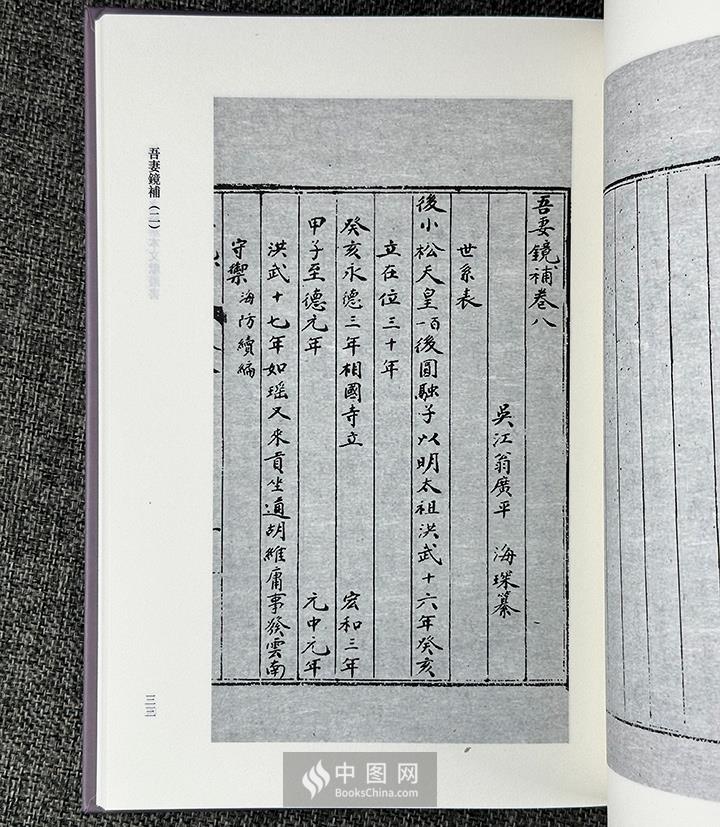 吾妻鏡補卷八
吳江翁廣平 海琛纂
世系表
後小松天皇百一後圓融子以明太祖洪武十六年癸亥
立在位三十年
癸亥永德三年相國寺立 宏和三年
甲子至德元年 元中元年
洪武十七年如瑶又來貢坐通胡維庸事發雲南
守禦 海防續編
吾妻鏡補（二）
中图网
BooksChina.com